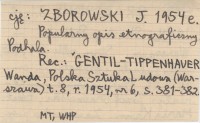 cję: ZBOROWSKI J. 1954 e.
Popularny opis etnograficzny
Podhala.
Rec.: GENTIL-TIPPENHAUER
Wanda, Polska Sztuka Ludowa (War-
szawa) t. 8, r. 1954, nr 6, s. 381-382
MT, WHP